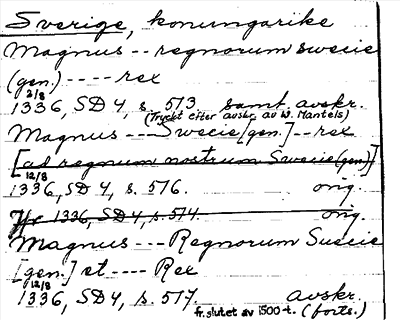 Sverige, konungarike
Magnus -- regnorum swecie
(gen.) ---- rex
2/8
1336, SD 4, s. 513 samt. avskr.
(Tryckt efter avskr. av W. Mantels)
Magnus --- Swecie [gen.] -- rex
[ad regnum nostrum Swecie (gen)]
12/8
1336, SD 4, s. 516. orig.
Jfr 1336, SD 4, s. 514. orig.
Magnus --- Regnorum Suecie
[gen.] et ---- Rex
12/8
1336, SD 4, s. 517. avskr.
fr. slutet av 1500-t. (forts.)